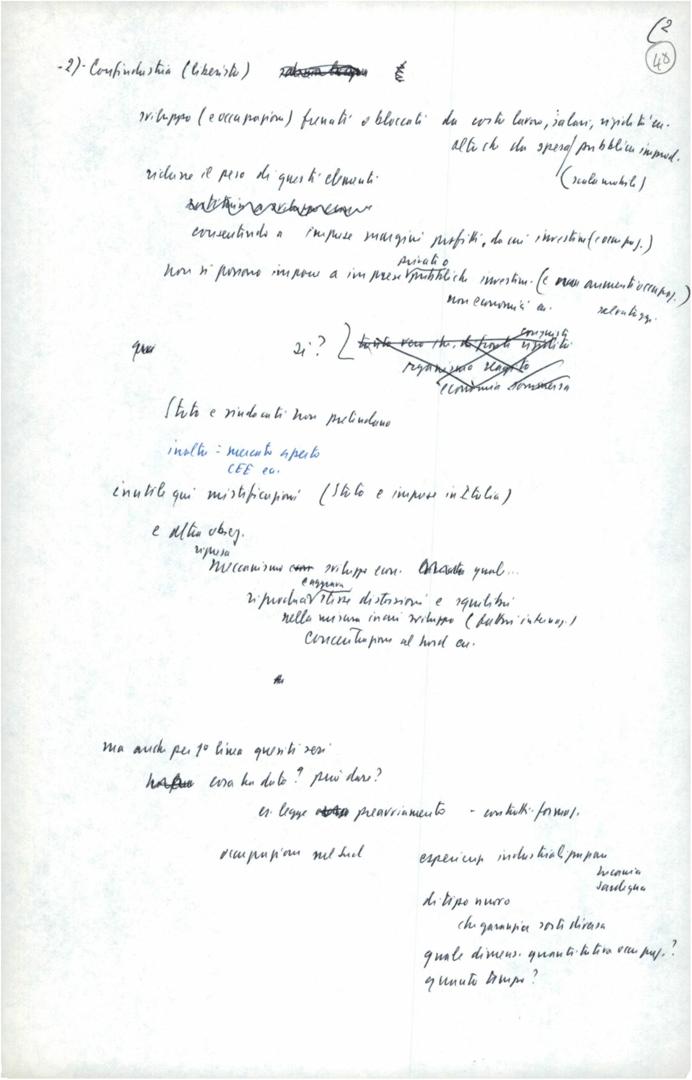 (2
48
-2)- Confindustria (liberista)
sviluppo (e occupazione) frenati o bloccati da costo lavoro, salari, rigidità ecc.
altre che da spesa pubblica improd.
(scala mobile)
ridurre il peso di questi elementi
consentendo a imprese margini profitti, da cui investim (e occupaz.)
privati o
non si possono imporre a imprese pubbliche investim. (e aumenti occupaz.)
non economici ec. salvataggi.
qui si?
organismo
economia sommersa
Stato e sindacati non pretendano
inoltre = mercato aperto
CEE ec.
inutile qui mistificazioni (Stato e imprese in Italia)
e altra obiez.
meccanismo sviluppo econ. qual...
e aggrava
riproduce stesse distorsioni e squilibri
nella misura in cui sviluppo (fattori internaz.)
concentrazione al nord ec.
ma anche per 1ª linea quesiti seri
cosa ha dato? può dare?
es. legge preavviamento - contratti formaz.
occupazione nel Sud
industriali
Lucania
Sardegna
di tipo nuovo
che garantisca sorti diverse
quale dimens. quantitativa occupaz.?
quanto tempo?